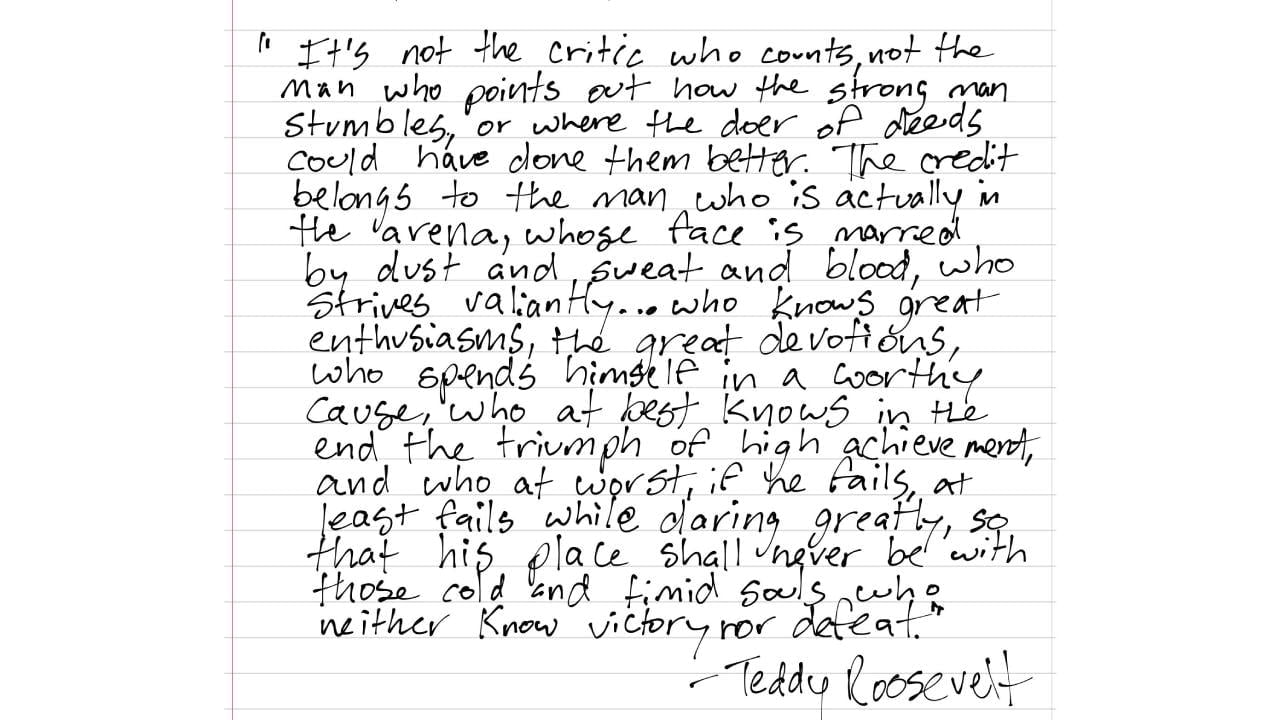 " It's not the critic who counts, not the
man who points out how the strong man
stumbles, or where the doer of deeds
could have done them better. The credit
belongs to the man who is actually in
the arena, whose face is marred
by dust and sweat and blood, who
strives valiantly... who knows great
enthusiasms, the great devotions,
who spends himself in a worthy
cause, who at best knows in the
end the triumph of high achievement,
and who at worst, if he fails, at
least fails while daring greatly, so
that his place shall never be with
those cold and timid souls who
neither know victory nor defeat."
- Teddy Roosevelt